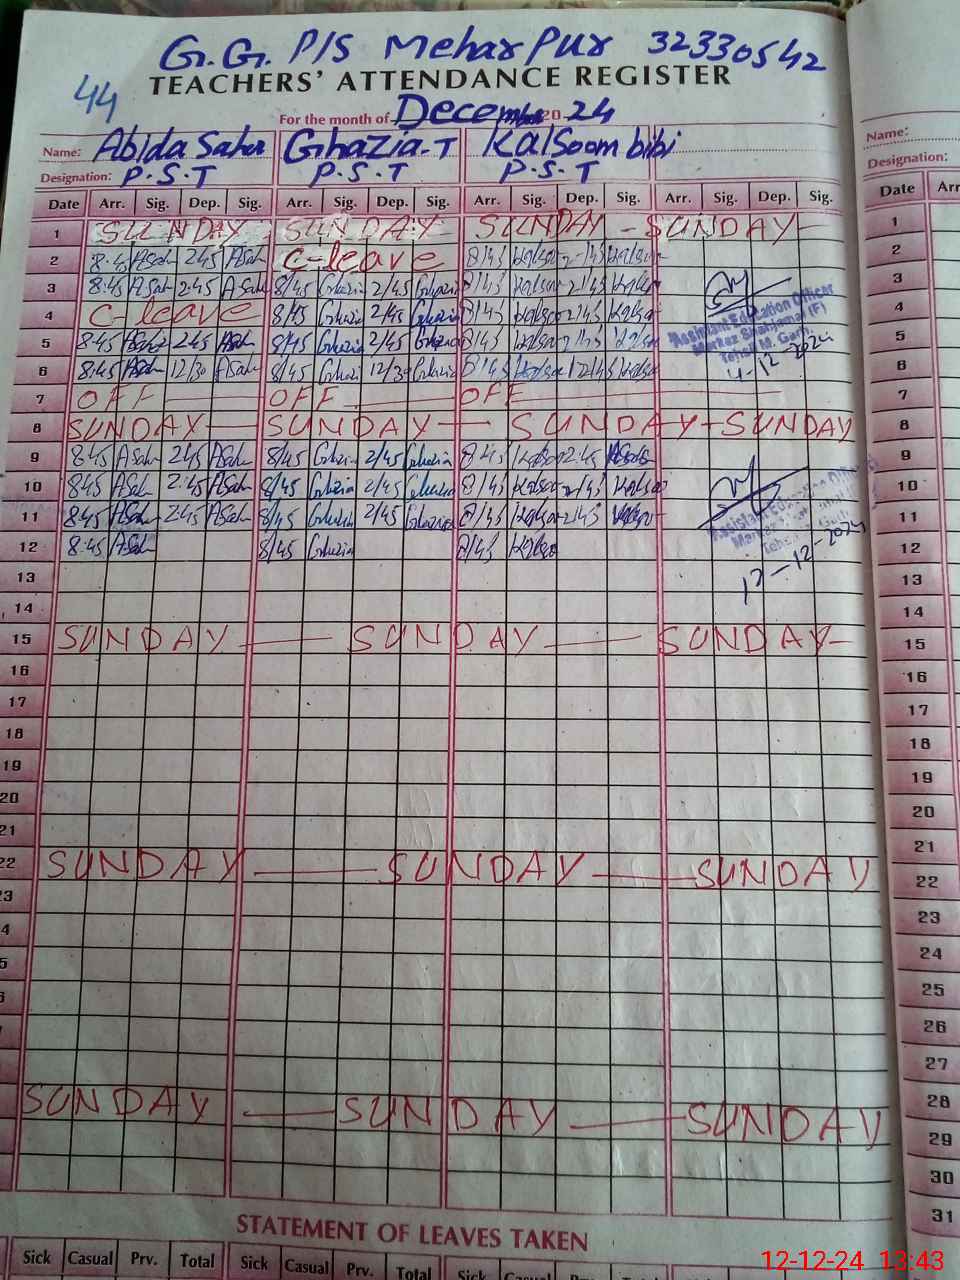 G.G. P/S Meharpur 32330542
TEACHERS' ATTENDANCE REGISTER
44
For the month of December 20 24
Name: Abida Sahar Ghazia-T Kalsoom bibi
Designation: P.S.T P.S.T P.S.T
Date Arr. Sig. Dep. Sig. Arr. Sig. Dep. Sig. Arr. Sig. Dep. Sig. Arr. Sig. Dep. Sig.
1 SUNDAY SUNDAY SUNDAY - SUNDAY - 1
2 8:45 ASah 2:45 ASah C-leave 8/45 Kalsoo 2/45 Kalsoo 2
3 8:45 ASah 2:45 ASah 8/45 Ghazia 2/45 Ghazia 8/45 Kalsoo 2/45 Kalsoo 3
4 C-leave 8/45 Ghazia 2/45 Ghazia 8/45 Kalsoo 2/45 Kalsoo 4
5 8:45 ASah 2:45 ASah 8/45 Ghazia 2/45 Ghazia 8/45 Kalsoo 2/45 Kalsoo 5
6 8:45 ASah 12/30 ASah 8/45 Ghazia 12/30 Ghazia 8/45 Kalsoo 12/45 Kalsoo 6
Assistant Education Officer
Markaz Shahjamal (F)
Tehsil M. Garh.
4-12-2024
7 OFF OFF OFF 7
8 SUNDAY — SUNDAY — SUNDAY - SUNDAY 8
9 8:45 ASah 2:45 ASah 8/45 Ghazia 2/45 Ghazia 8/45 Kalsoo 2:45 ASah 9
10 8:45 ASah 2:45 ASah 8/45 Ghazia 2/45 Ghazia 8/45 Kalsoo 2/45 Kalsoo 10
11 8:45 ASah 2:45 ASah 8/45 Ghazia 2/45 Ghazia 8/45 Kalsoo 2/45 Kalsoo 11
12 8:45 ASah 8/45 Ghazia 8/45 Kalsoo 12
Assistant Education Offi
12-12-2024
13 13
14 14
15 SUNDAY — SUNDAY — SUNDAY - 15
16 16
17 17
18 18
19 19
20 20
21 21
22 SUNDAY — SUNDAY — SUNDAY 22
23
24
25
26
27
28
SUNDAY — SUNDAY — SUNDAY 29
30
31
STATEMENT OF LEAVES TAKEN
Sick Casual Prv. Total Sick Casual Prv. Total Sick Casual Prv. Total
Name:
Designation:
Date Arr
12-12-24 13:43